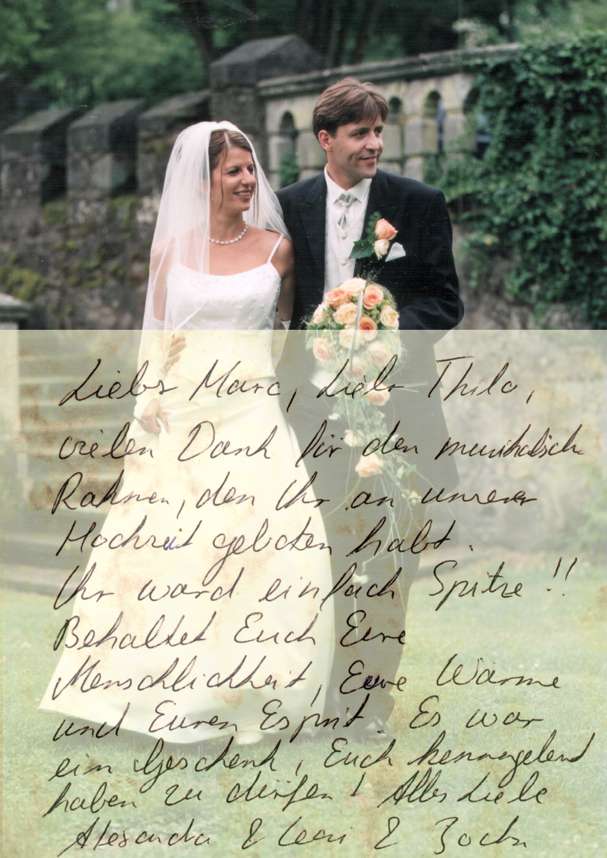 Lieber Marc, lieber Thilo,
vielen Dank für den musikalisch
Rahmen, den Ihr an unserer
Hochzeit geboten habt.
Ihr ward einfach Spitze!!
Behaltet Euch Eure
Menschlichkeit, Eure Wärme
und Euren Esprit. Es war
ein Geschenk, Euch kennengelernt
haben zu dürfen! Alles Liebe
Alexandra &